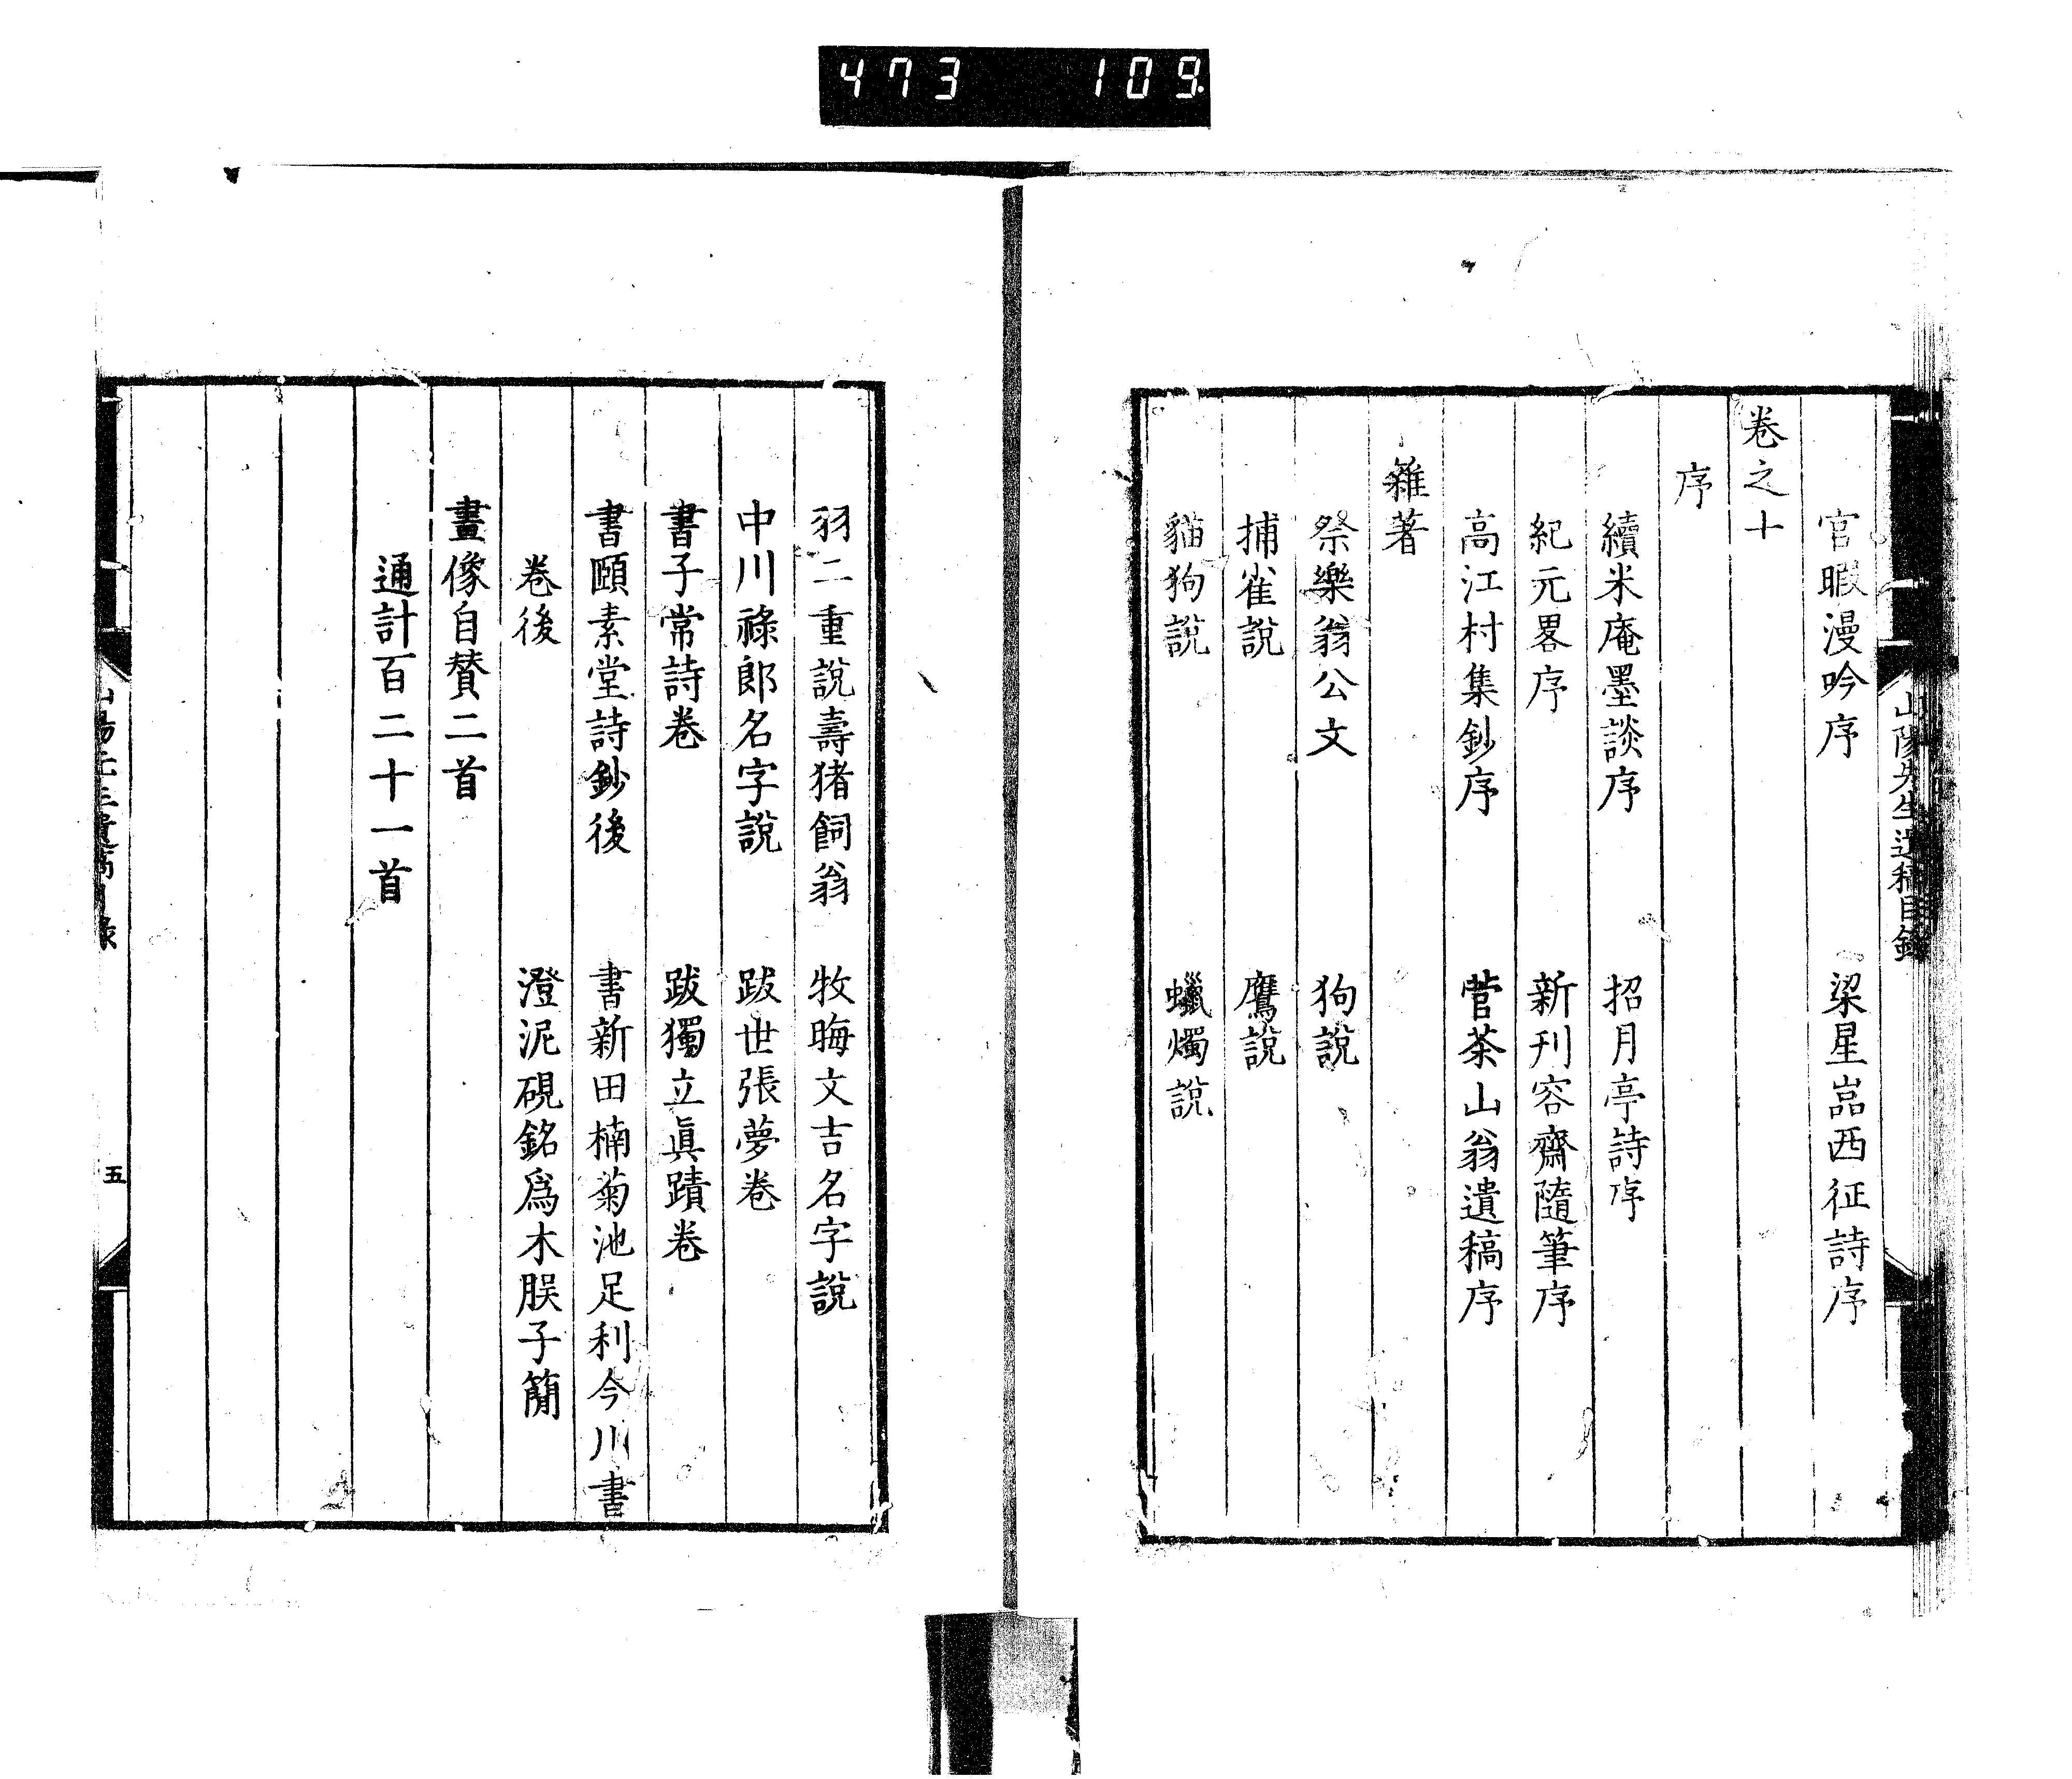 473 109
山陽先生遺稿目錄
官暇漫吟序 梁星嵓西征詩序
卷之十
序
續米庵墨談序 招月亭詩序
紀元畧序 新刊容齋隨筆序
高江村集鈔序 菅茶山翁遺稿序
雜著
祭樂翁公文 狗說
捕雀說 鷹說
貓狗說 蠟燭說
羽二重說壽猪飼翁 牧晦文吉名字說
中川祿郎名字說 跋世張夢卷
書子常詩卷 跋獨立眞蹟卷
書頤素堂詩鈔後 書新田楠菊池足利今川書
卷後 澄泥硯銘爲木䏜子簡
畫像自贊二首
通計百二十一首
五